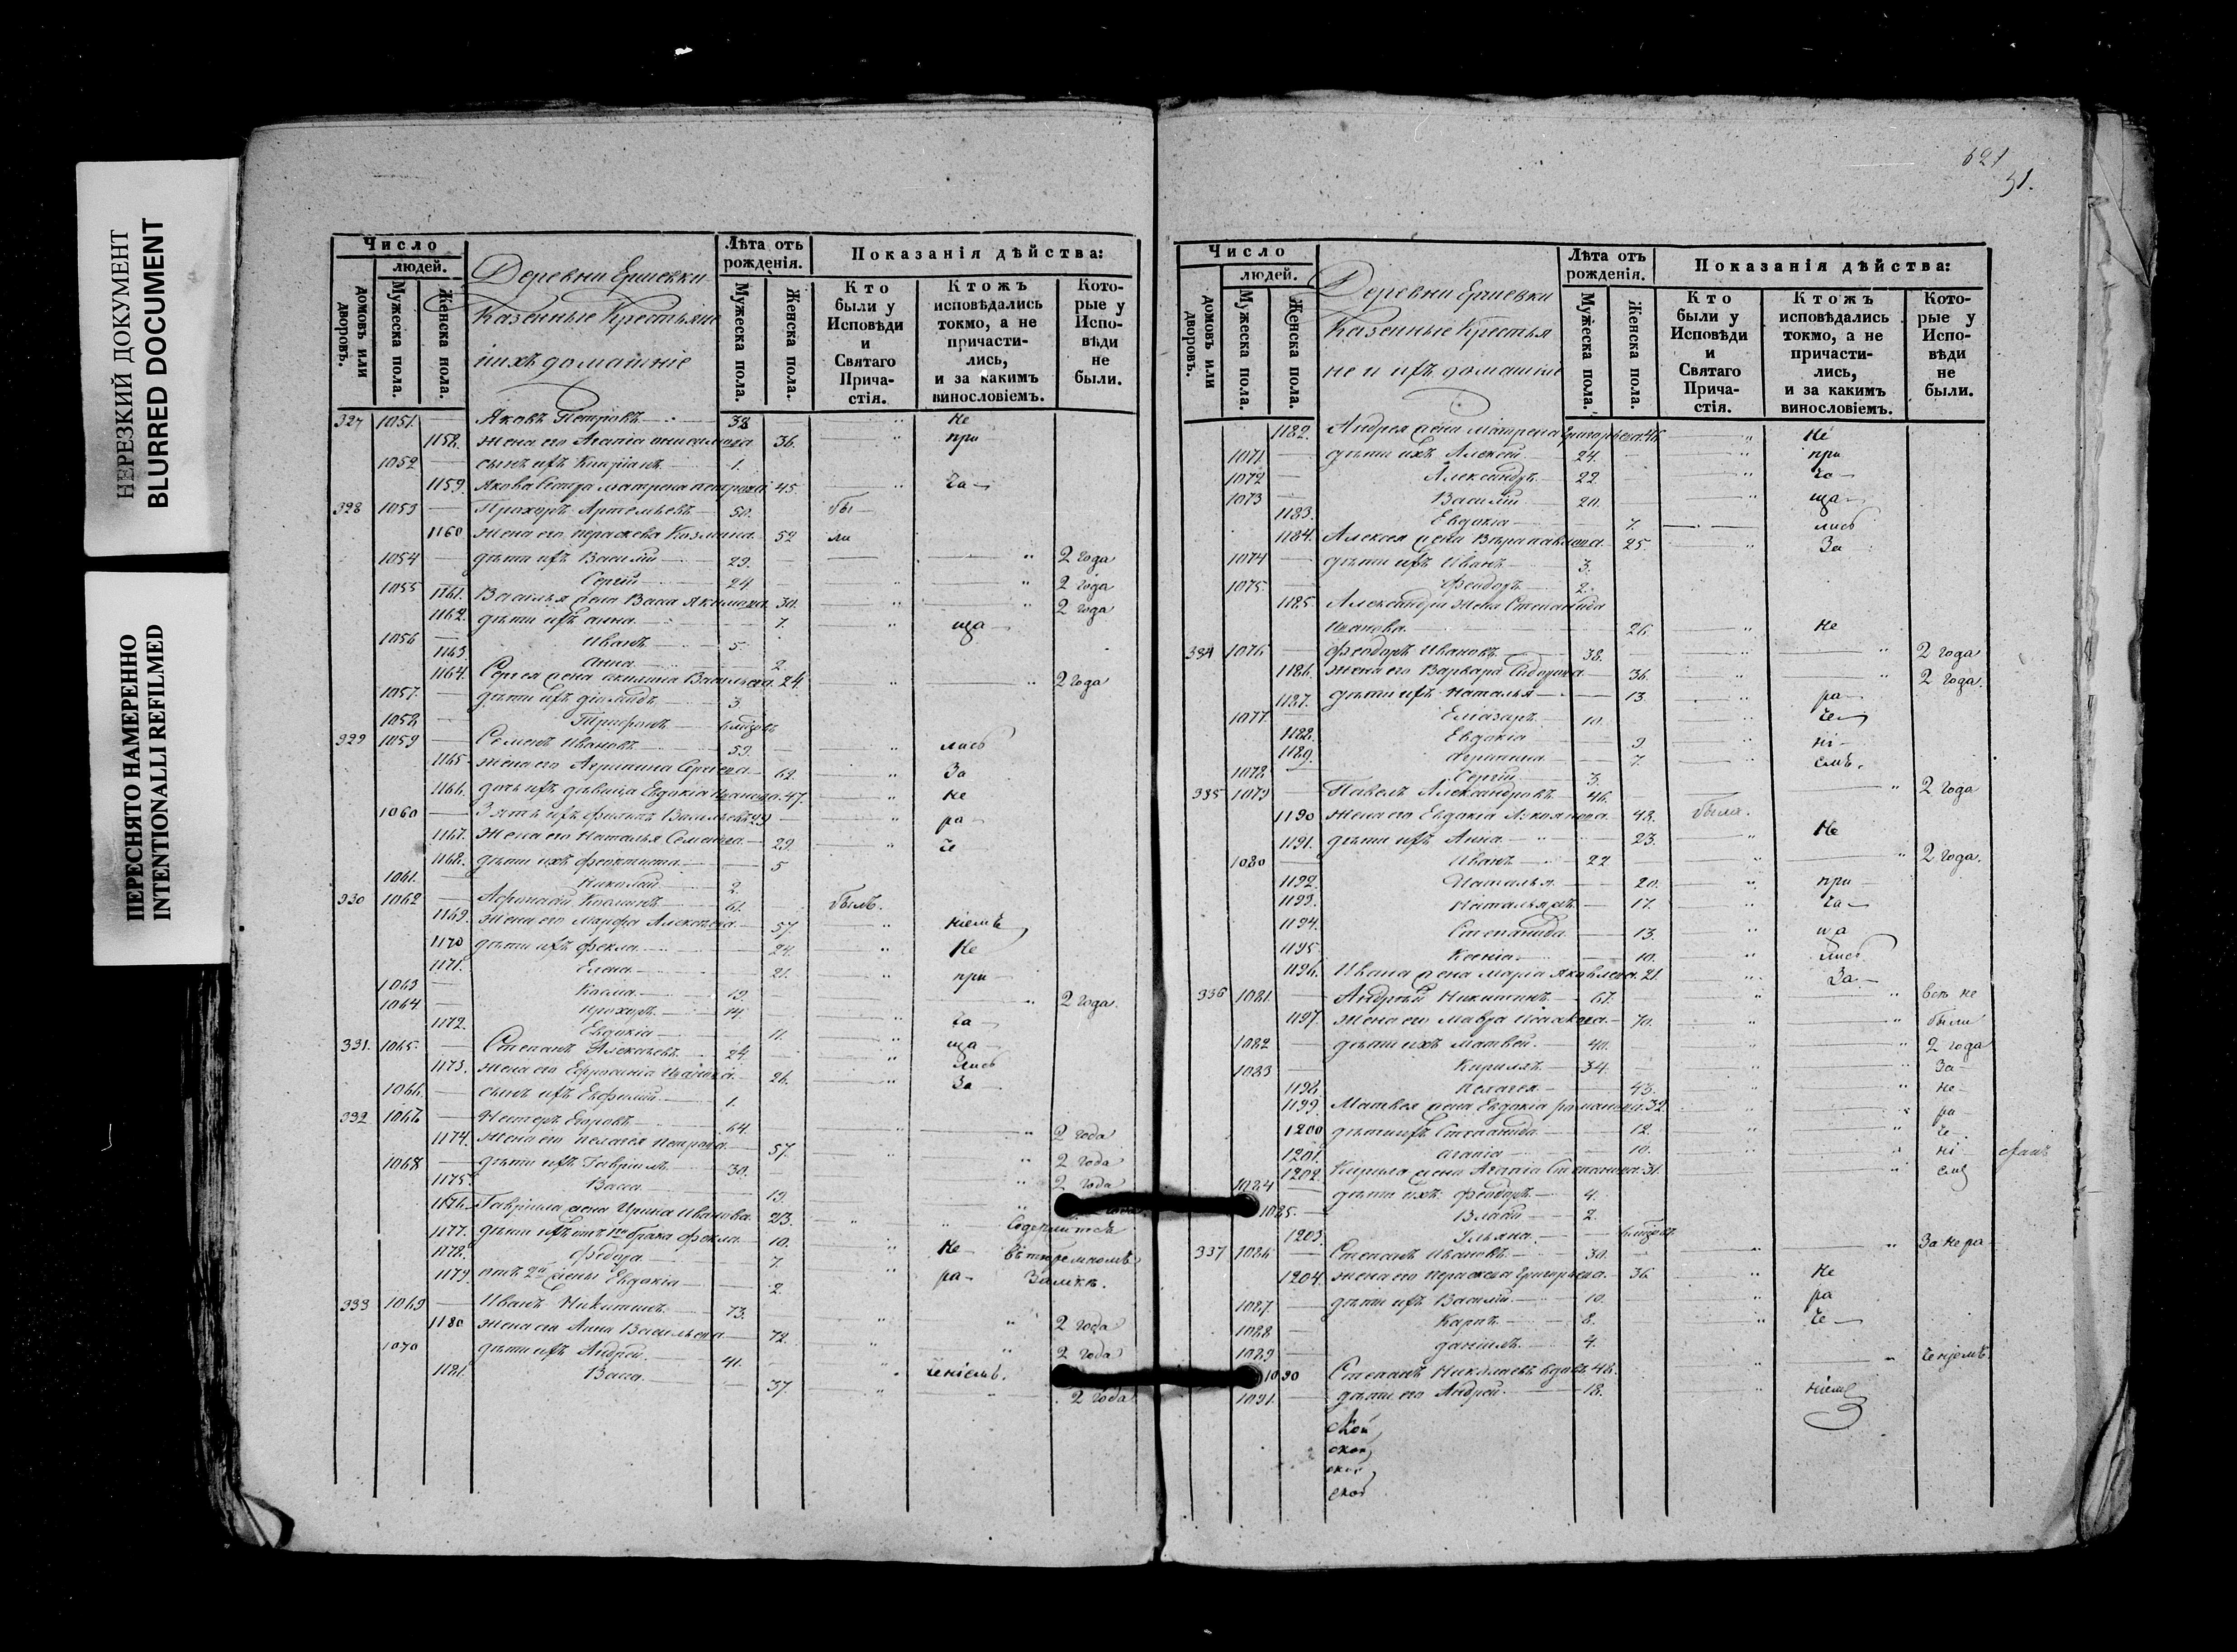 НЕРЕЗКИЙ ДОКУМЕНТ
BLURRED DOCUMENT
ПЕРЕСНЯТО НАМЕРЕННО
INTENTIONALLI REFILMED
Число
людей.
домовъ или дворовъ.
Мужеска пола.
Женска пола.
Деревни Ершевки
Казенные Крестьяне
и ихъ домашніе
Лѣта отъ рожденія.
Мужеска пола.
Женска пола.
Показанія дѣйства:
Кто были у Исповѣди и Святаго Прича-стія.
Ктожъ исповѣдались токмо, а не причасти-лись, и за какимъ винословіемъ.
Кото-рые у Испо-вѣди не были.
327 1051 Яковъ Петровъ 38 Не
1158. жена его Агапіа 36. при
1052 сынъ ихъ Кипріанъ 1.
1159. Якова Сестра матрена петрова 45 ча
328 1053 Прохоръ Артемьевъ 50. бы
1160 жена его параскева Козмина 52 ли
1054 дѣти ихъ Василій 29. 2 года
1055 Сергій 24 2 года
1161. Василья жена Васа Якимова 30. 2 года
1162. дѣти ихъ анна 7. ща
1056 Иванъ 5
1163 Анна 2
1164. Сергея жена акилина Васильева 24. 2 года
1057. дѣти ихъ діомидъ 3
1058 Трифонъ
329 1059 Семенъ Ивановъ 59. лись
1165 жена его Агрипина Сергеева 62. За
1166. дочь ихъ дѣвица Евдокіа 47. не
1060 Зять ихъ филипъ Васильевъ 29 ра
1167. жена его Наталья Семенова 29. че
1168. дѣти ихъ феоктиста 5
1061. Николай 2.
330 1062 Афонасій Козминъ 61. былъ.
1169. жена его Марфа Алексѣева 57. ніемъ
1170 дѣти ихъ фекла 24. Не
1171. Елена 21. при
1063 Козма 19. 2 года.
1064. прохоръ 14.
1172. Евдокіа 11. ча
331. 1065. Степанъ Алексѣевъ 24. ща
1173. жена его Ефросиніа 26. лись
1066. сынъ ихъ Евфимій 1. За
332 1067 Несторъ Егоровъ 64. 2 года
1174. жена его пелагея петрова 57. 2 года
1068 дѣти ихъ Гавріилъ 30. 2 года
1175. Васса 19.
1176. Гавріила жена Ирина Иванова 23. Содержится
1177. дѣти ихъ отъ 1го брака фекла 10. въ тюремномъ
1178. федора 7. Не Замкѣ.
1179 отъ 2й жены Евдокіа 2. ра
333 1069 Иванъ Никитинъ 73. 2 года
1180 жена его Анна Васильева 72. 2 года
1070 дѣти ихъ Андрей 41. ченіемъ.
1181. Васса 37. 2 года
621
51.
Число
людей.
домовъ или дворовъ.
Мужеска пола.
Женска пола.
Деревни Ершевки
Казенные Крестья
не и ихъ домашніе
Лѣта отъ рожденія.
Мужеска пола.
Женска пола.
Показанія дѣйства:
Кто были у Исповѣди и Святаго Прича-стія.
Ктожъ исповѣдались токмо, а не причасти-лись, и за какимъ винословіемъ.
Кото-рые у Испо-вѣди не были.
1182. Андрея жена матрена Григорьева 46 Не
1071 дѣти ихъ Алексей 24. при
1072 Александръ 22. ча
1073 Василій 20. ща
1183. Евдокіа 7. лись
1184. Алексея жена Вѣра павлова 25. За
1074 дѣти ихъ Иванъ 3.
1075. Феодоръ 2.
1185. Александра жена Степанида
Иванова 26. Не
334 1076 Феодоръ Ивановъ 38. 2 года
1186. жена его Варвара 36. 2 года.
1187. дѣти ихъ Наталья 13. ра
1077 Еліазаръ 10. че
1188. Евдокіа 9. ні
1189. Агрипина 7. емъ.
1078 Сергій 3
335 1079 Павелъ Александровъ 46. 2 года
1190 жена его Евдокіа 48. была.
1191. дѣти ихъ Анна 23. Не
1080 Иванъ 22 2 года.
1192. Наталья 20. при
1193. Наталья 17. ча
1194. Степанида 13. ща
1195. Ксеніа 10. лись
1196. Ивана жена Маріа Яковлева 21 За
336 1081. Андрей Никитинъ 67. всѣ не
1197. жена его Мавра Исаакова 70. были
1082 дѣти ихъ матвей 40. 2 года
1083 Кирилъ 34. За
1198. пелагея 43. не
1199. Матвея жена Евдокіа романова 32. ра
1200 дѣти ихъ Степанида 12. че
1201. агапіа 10. ні
1202. Кирила жена Агапіа Степанова 31. емъ
1084 дѣти ихъ Феодоръ 4.
1085 Власій 2.
1203. Ульяна
337 1086 Степанъ Ивановъ 30. За нера
1204. жена его параскева Григорьева 36 Не
1087. дѣти ихъ Василій 10. ра
1088 Карпъ 8. че
1089 даніилъ 4.
1090 Степанъ Николаевъ вдовъ 48. ченіемъ
1091. дѣти его Андрей 18. ніемъ